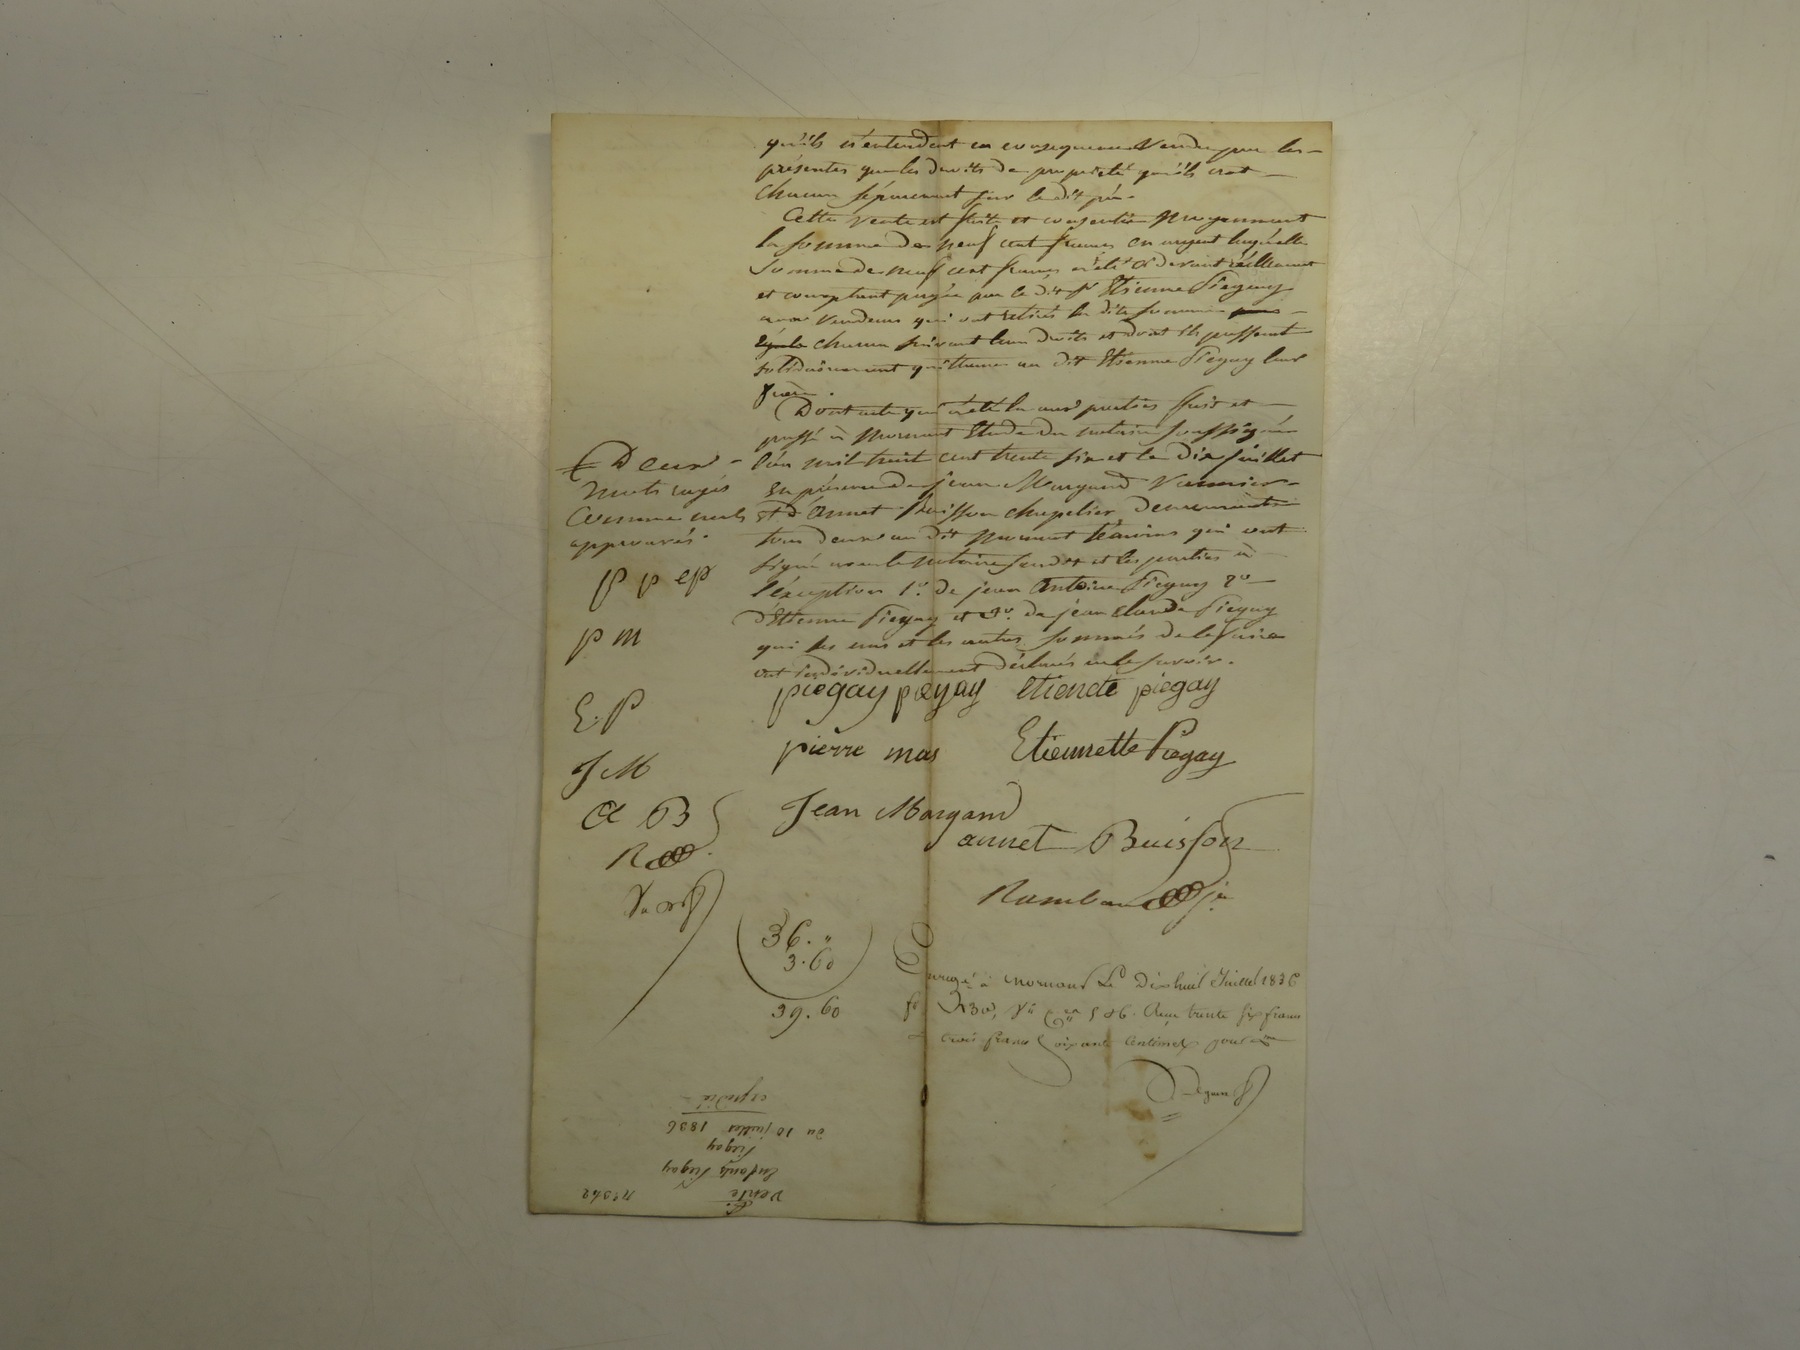 qu'ils n'entendent en consequence Vendre par les
présentes que les droits de propriété qu'ils ont
chacun séparement sur le dit pré.
Cette vente est faite et consentie Moyennant
la somme de neuf cent francs en argent laquelle
somme de neuf cent francs a été ci devant réellement
et comptant payée par le dit Sr Etienne Piegay
aux Vendeurs qui ont retiré la dite somme
chacun suivant leurs droits et dont ils passent
solidairement quittance au dit Etienne Piegay leur
frère.
Dont acte qui a été lu aux parties fait et
passé à Mornant Etude du notaire soussigné
l'an mil huit cent trente six et le dix juillet
En présence de jean Margand Vannier
Et d'Annet Buisson chapelier demeurants
tous deux au dit Mornant témoins qui ont
signé avec le notaire susdit et les parties à
l'exception 1º. de jean Antoine Piegay 2º
d'Etienne Piegay et 3º. de jean Claude Piegay
qui les uns et les autres sommés de le faire
ont individuellement déclarés ne le savoir.
Deux
mots rayés
comme nuls
approuvés
p p ep
p m
E. P
J M
A B
piegay etiende piegay
pierre mas Etiennette Piegay
Jean Margand
annet Buisson
Rambaud jne
36. "
3. 60
39. 60
à Mornant Le Dix huit Juillet 1836
fo Reçu trente six francs
trois francs soixante centimes pour
nº 342
Vente
Enfants Piegay
Piegay
du 10 juillet 1836
expédié